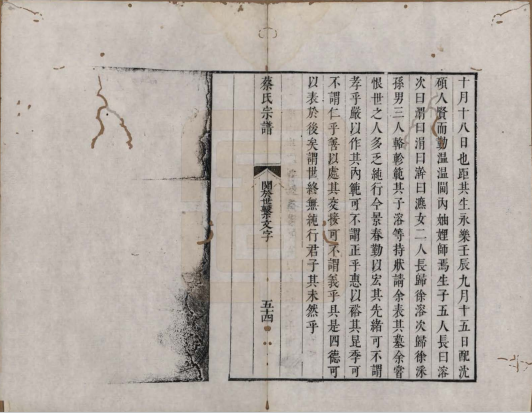 十月十八日也距其生永樂壬辰九月十五日配沈
碩人賢而勤溫溫閫內妯娌師焉生子五人長曰溶
次曰渭曰涓曰澣曰漁女二人長歸徐溶次歸徐洙
孫男三人輅軫範其子溶等持狀請余表其墓余嘗
恨世之人多乏純行今景春勤以宏其先緒可不謂
孝乎嚴以作其內範可不謂正乎惠以裕其昆季可
不謂仁乎善以處其交接可不謂義乎具是四德可
以表於後矣謂世終無純行君子其未然乎
蔡氏宗譜
關於世繫文字
五十四